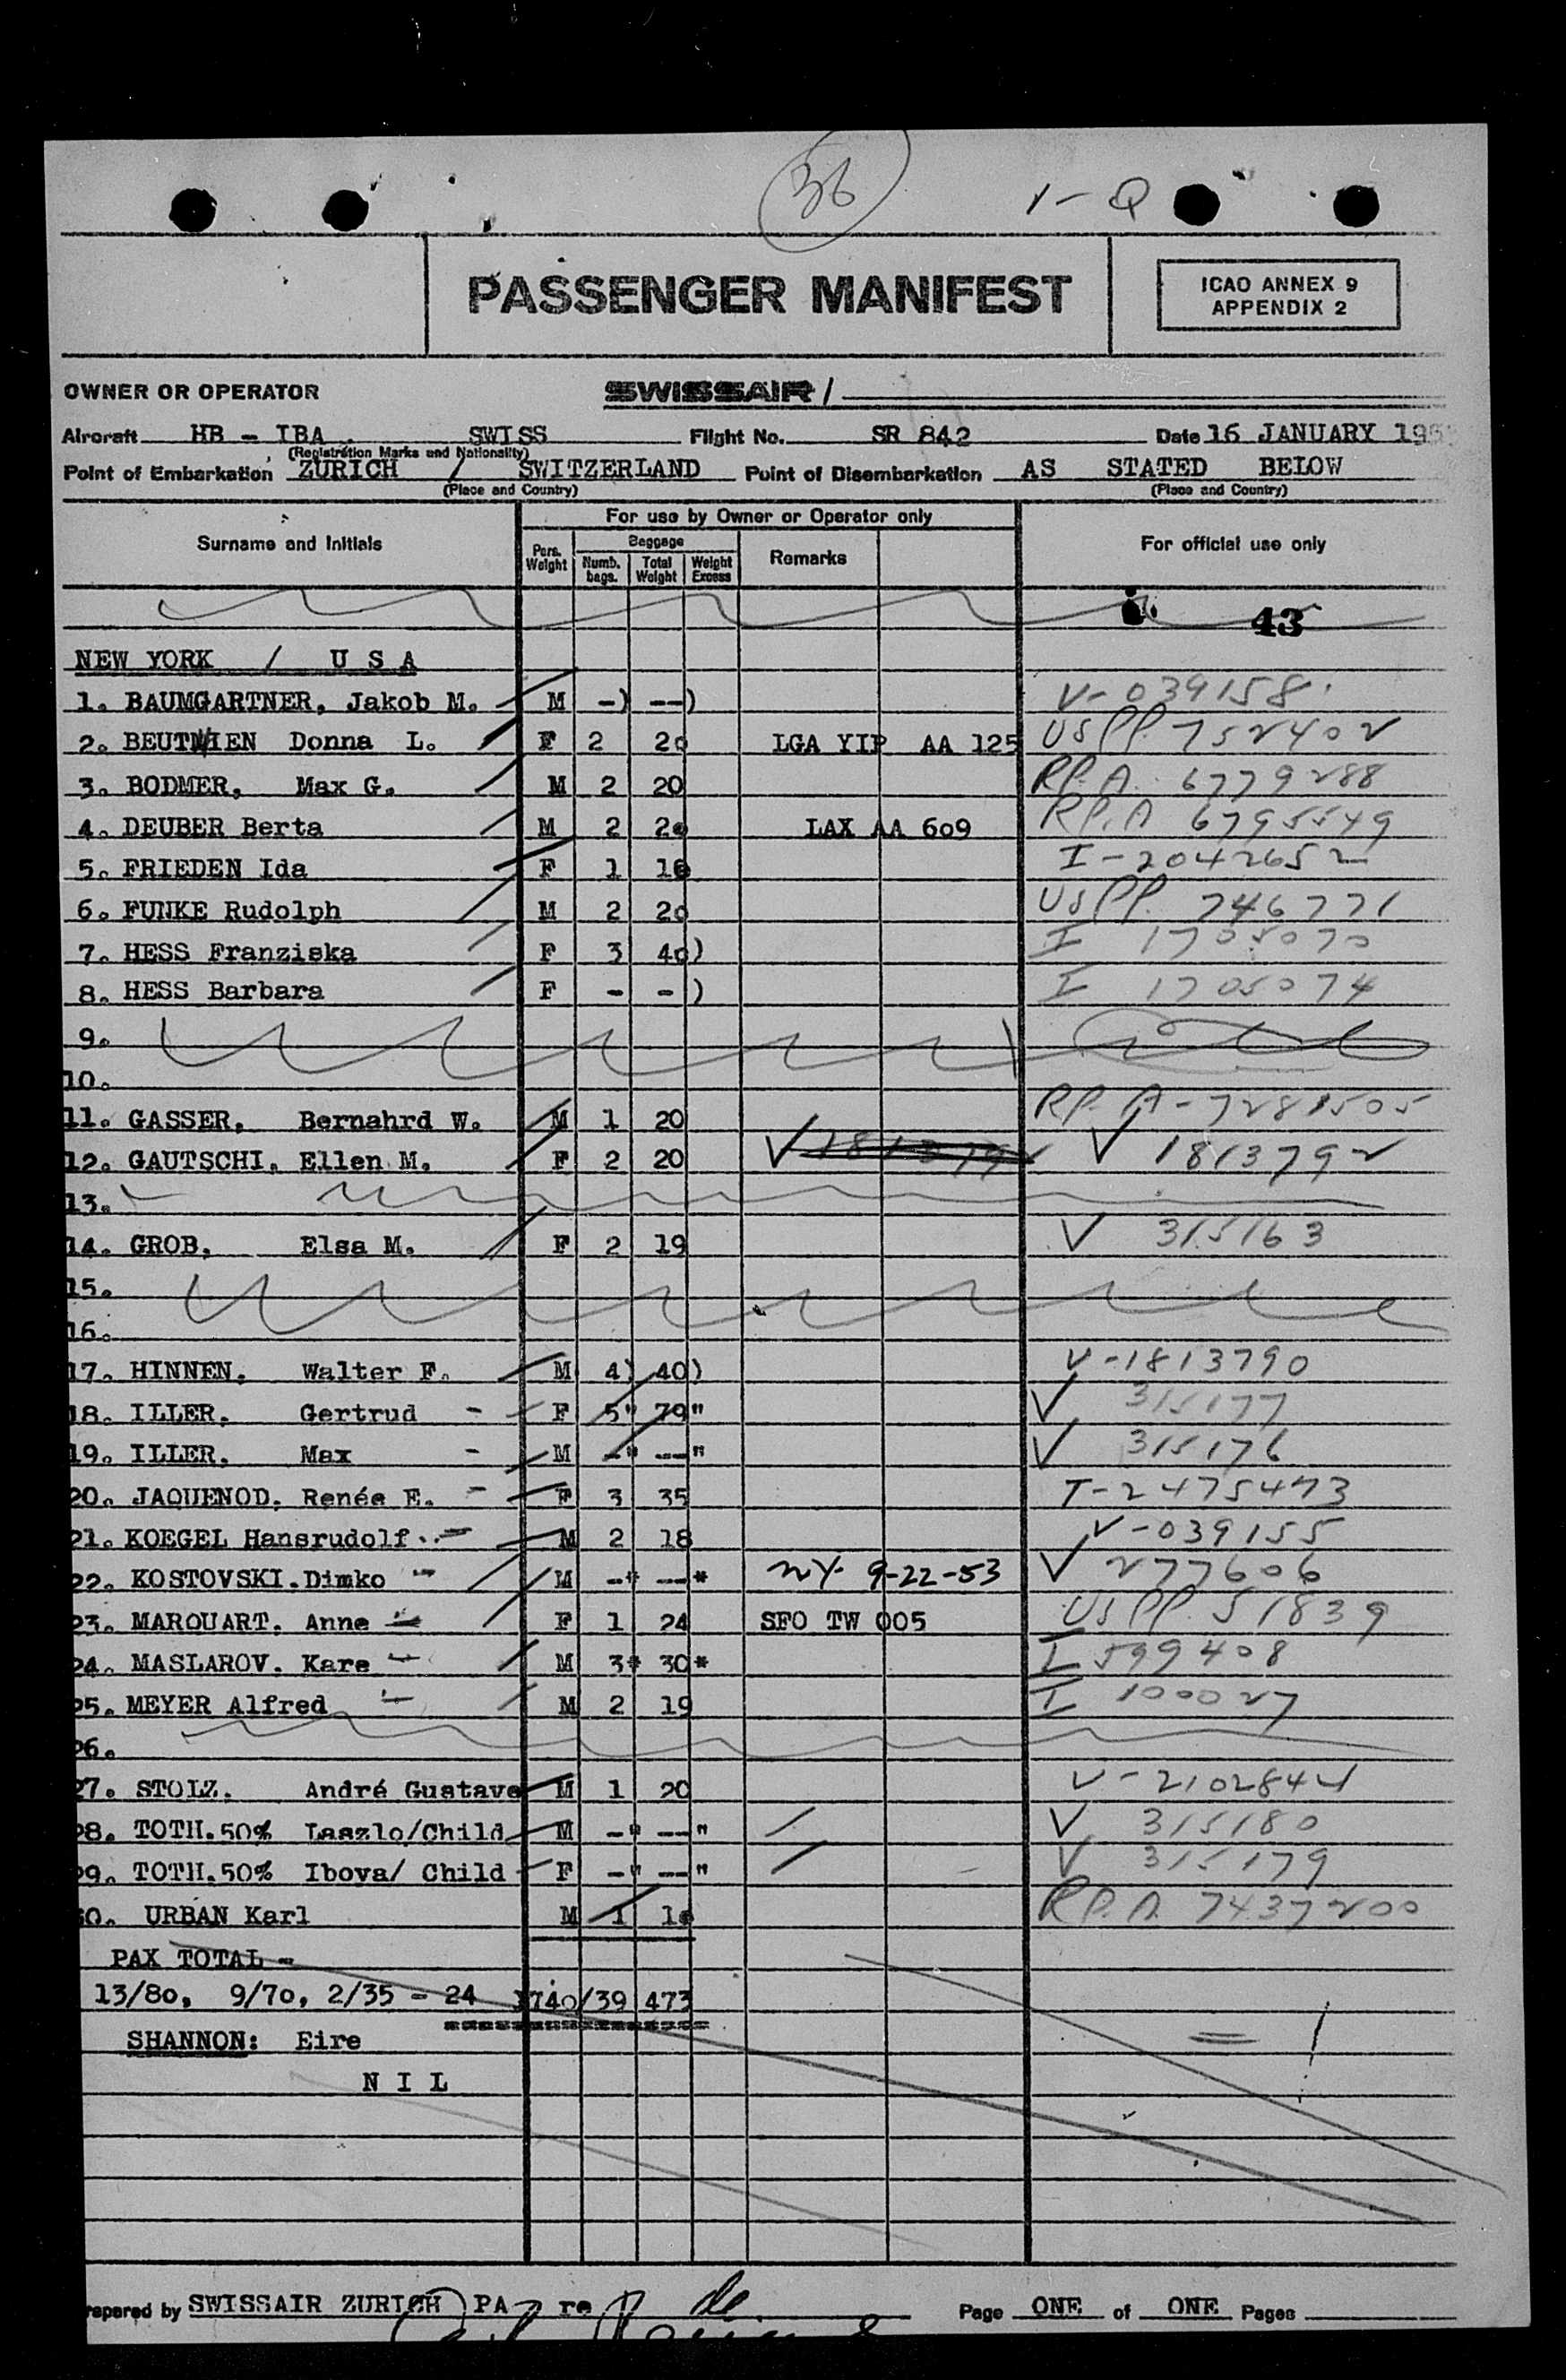 36
1-Q
PASSENGER MANIFEST
ICAO ANNEX 9
APPENDIX 2
OWNER OR OPERATOR SWISSAIR/
Aircraft HB - IBA. SWISS Flight No. SR 842 Date 16 JANUARY 195
(Registration Marks and Nationality)
Point of Embarkation ZURICH / SWITZERLAND Point of Disembarkation AS STATED BELOW
(Place and Country) (Place and Country)
For use by Owner or Operator only
Surname and Initials Pers. Weight Baggage Numb. bags. Total Weight Weight Excess Remarks For official use only
43
NEW YORK / U S A
1. BAUMGARTNER, Jakob M. M -) --) V-039158
2. BEUTNIEN Donna L. F 2 20 LGA YIP AA 125 US PP. 752402
3. BODMER, Max G. M 2 20 RP. A. 6779288
4. DEUBER Berta M 2 20 LAX AA 609 RP. A 6795549
5. FRIEDEN Ida F 1 16 I-2042652
6. FUNKE Rudolph M 2 20 US PP. 746771
7. HESS Franziska F 3 40) I 1705070
8. HESS Barbara F - -) I 1705074
9.
10.
11. GASSER, Bernahrd W. M 1 20 RP. A-7281505
12. GAUTSCHI, Ellen M. F 2 20 V 181379 V 1813792
13.
14. GROB, Elsa M. F 2 19 V 315163
15.
16.
17. HINNEN, Walter F. M 4) 40) V-1813790
18. ILLER, Gertrud - F 5" 79" V 315177
19. ILLER, Max - M -" --" V 315176
20. JAQUENOD, Renée E. - F 3 35 T-2475473
21. KOEGEL Hansrudolf M 2 18 V-039155
22. KOSTOVSKI.Dimko M -* --* NY- 9-22-53 V 277606
23. MARQUART, Anne F 1 24 SFO TW 005 US PP. 51839
24. MASLAROV, Kare M 3* 30* I 599408
25. MEYER Alfred M 2 19 I 100027
26.
27. STOLZ, André Gustave M 1 20 V-2102844
28. TOTH.50% Laszlo/Child M -" --" V 315180
29. TOTH.50% Ibova/ Child F -" --" V 315179
30. URBAN Karl M 1 RP. A. 7437200
PAX TOTAL -
13/80, 9/70, 2/35 - 24 1740/39 473
SHANNON: Eire
N I L
repared by SWISSAIR ZURICH PA re Page ONE of ONE Pages